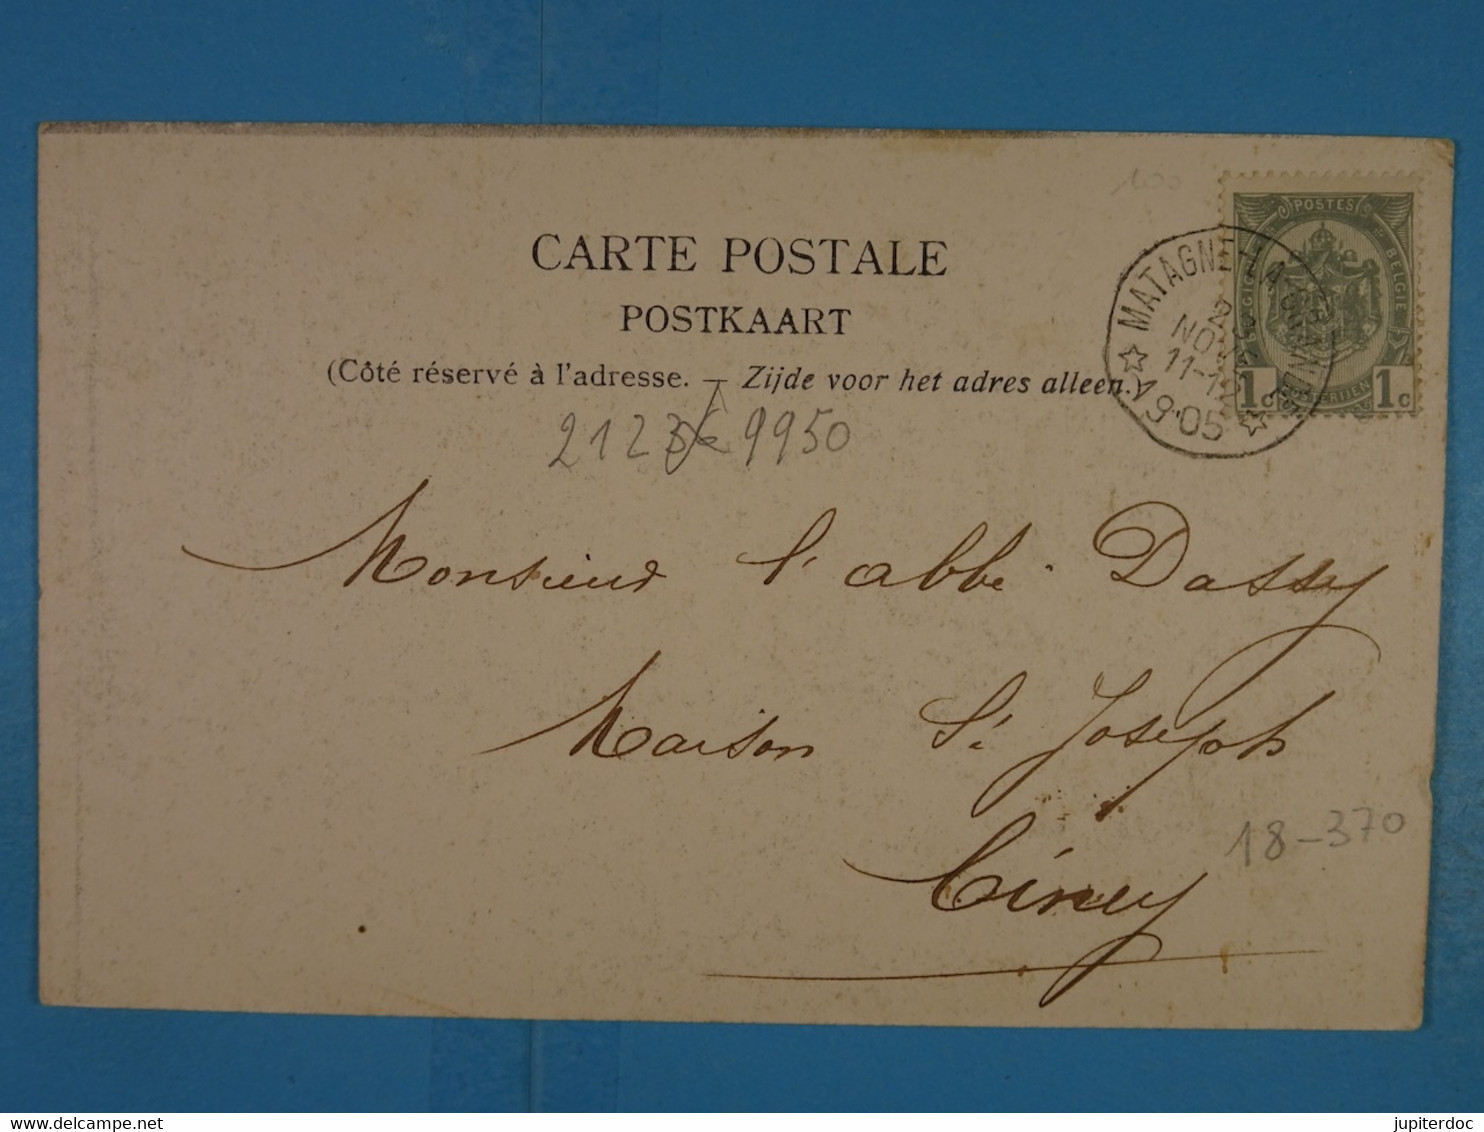 100
POSTES
BELGIE
1c 1c
MATAGNE-LA-GRANDE
2
NOV
11-12
1905
CARTE POSTALE
POSTKAART
(Côté réservé à l'adresse. — Zijde voor het adres alleen.)
9950
Monsieur l'abbé Dassy
Maison St Joseph
18-370
Ciney
www.delcampe.net
jupiterdoc